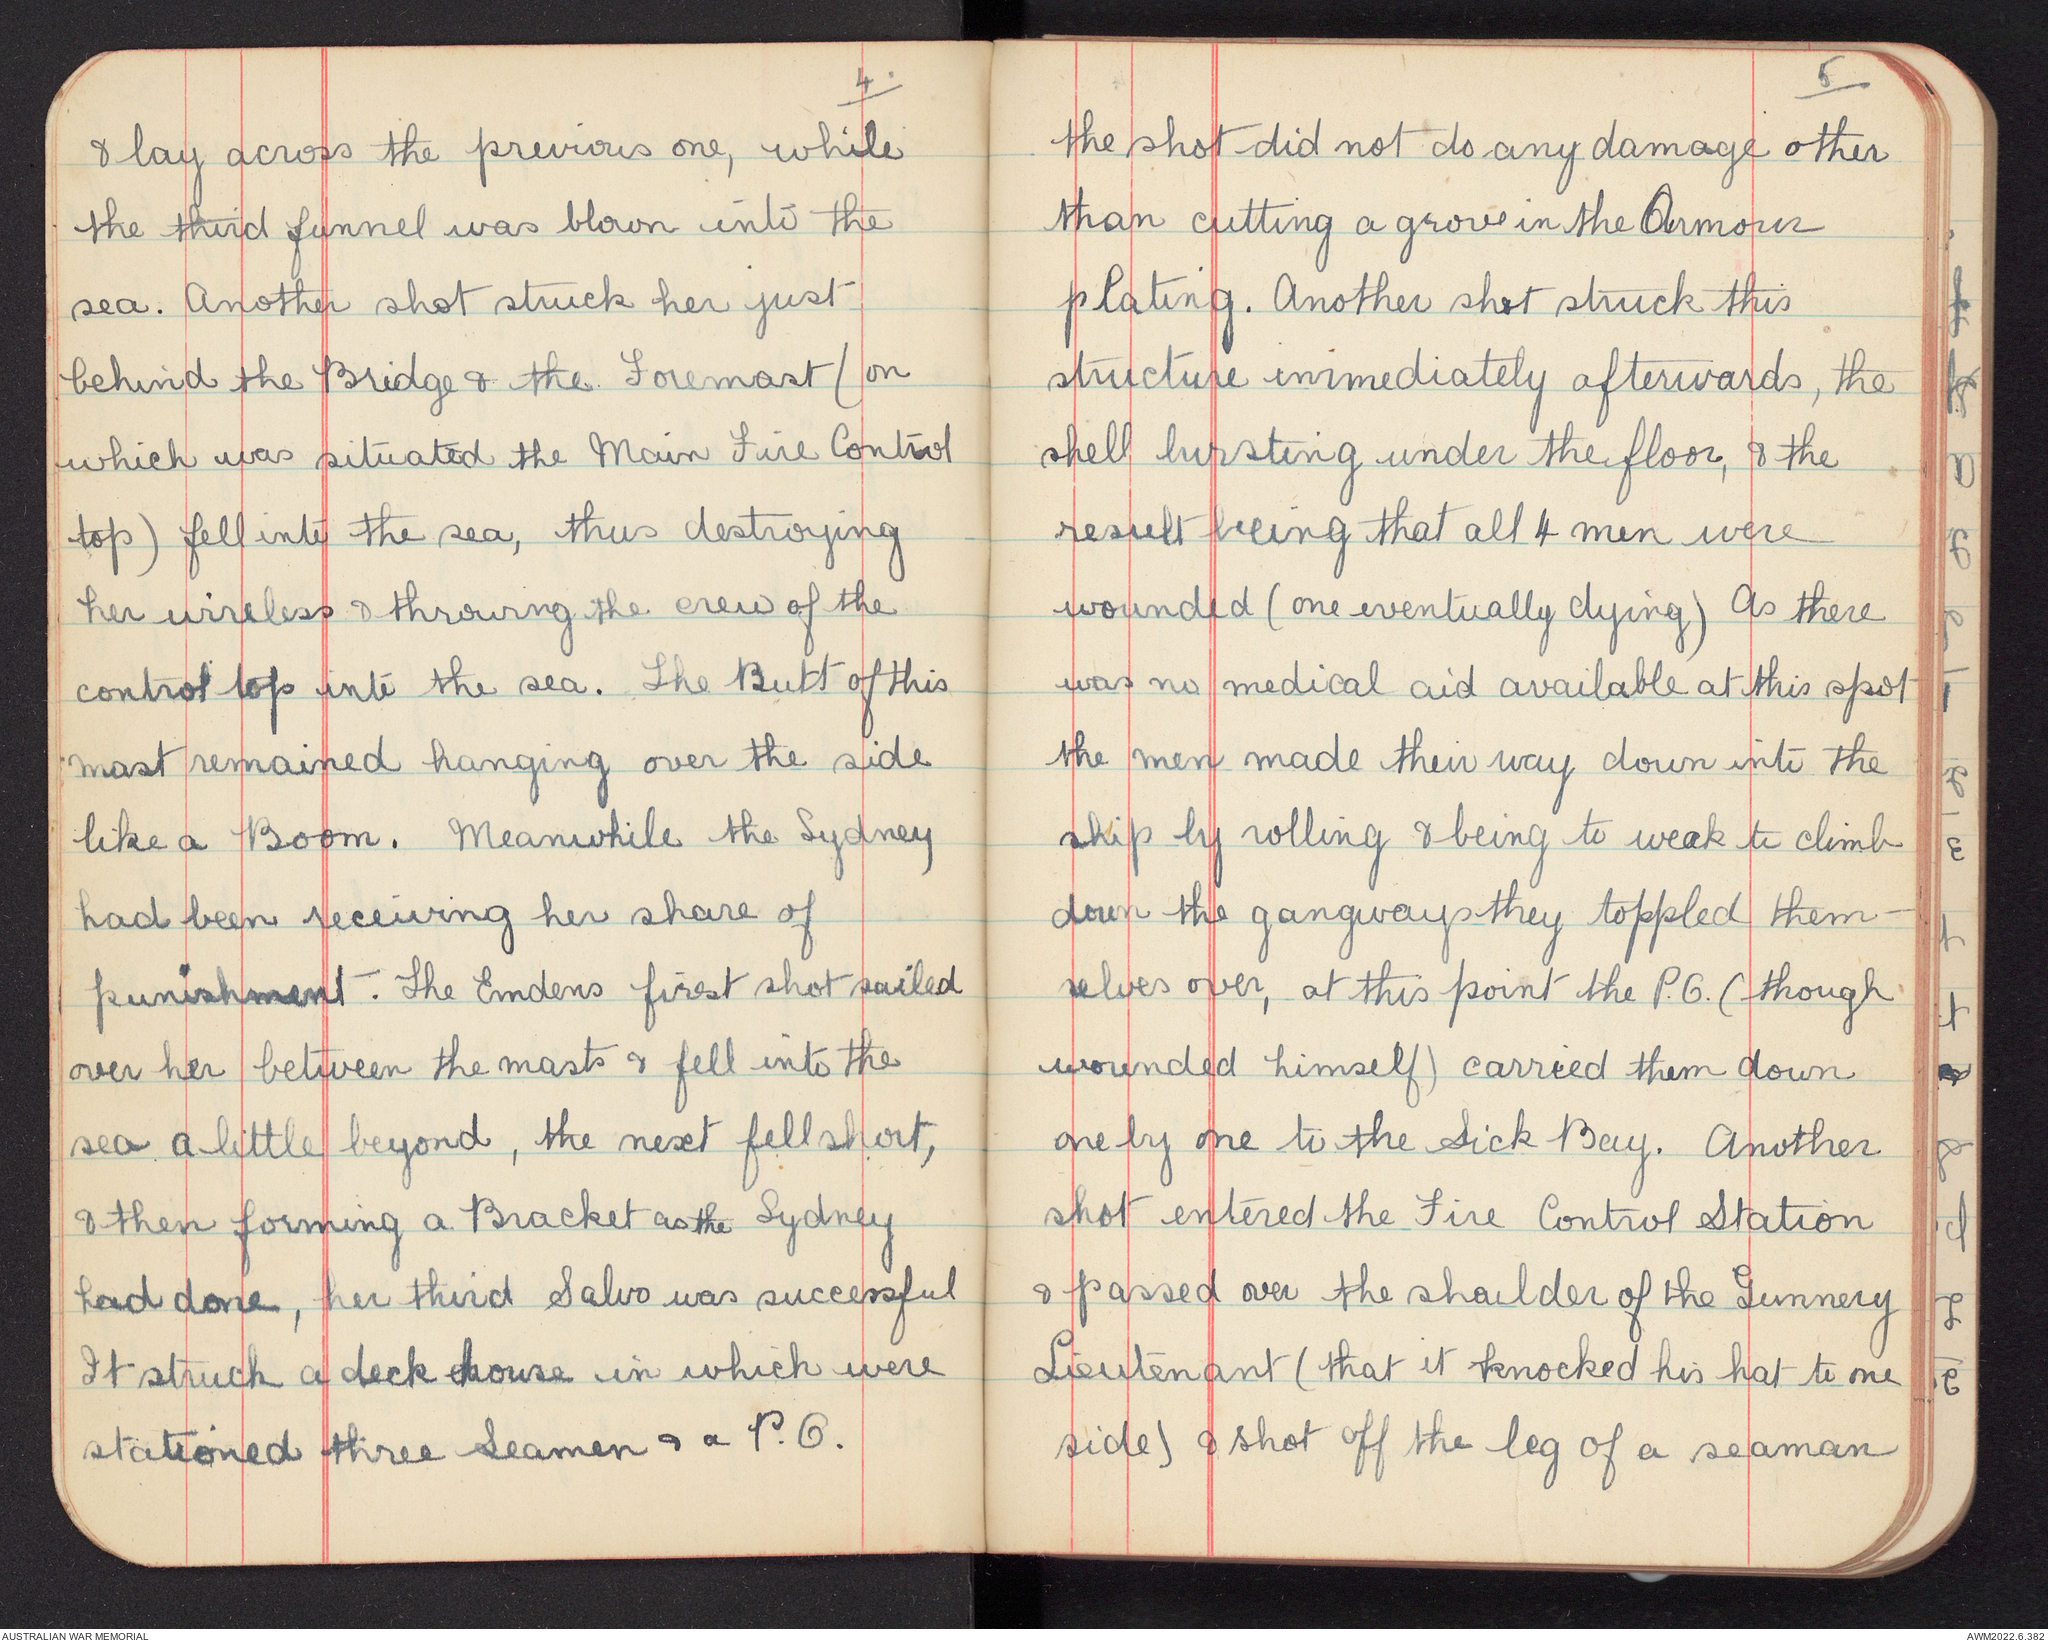 4.
& lay across the previous one, while
the third funnel was blown into the
sea. Another shot struck her just
behind the Bridge & the Foremast (on
which was situated the Main Fire Control
top) fell into the sea, thus destroying
her wireless & throwing the crew of the
control top into the sea. The Butt of this
mast remained hanging over the side
like a Boom. Meanwhile the Sydney
had been receiving her share of
punishment. The Emdens first shot sailed
over her between the masts & fell into the
sea a little beyond, the next fell short,
& then forming a Bracket as the Sydney
had done, her third Salvo was successful
It struck a deck house in which were
stationed three Seamen & a P.O.
5
the shot did not do any damage other
than cutting a grove in the Armour
plating. Another shot struck this
structure immediately afterwards, the
shell bursting under the floor, & the
result being that all 4 men were
wounded (one eventually dying) As there
was no medical aid available at this spot
the men made their way down into the
ship by rolling & being to weak to climb
down the gangways they toppled them-
selves over, at this point the P.O. (though
wounded himself) carried them down
one by one to the Sick Bay. Another
shot entered the Fire Control Station
& passed over the shoulder of the Gunnery
Lieutenant (that it knocked his hat to one
side) & shot off the leg of a seaman
AUSTRALIAN WAR MEMORIAL
AWM2022.6.382